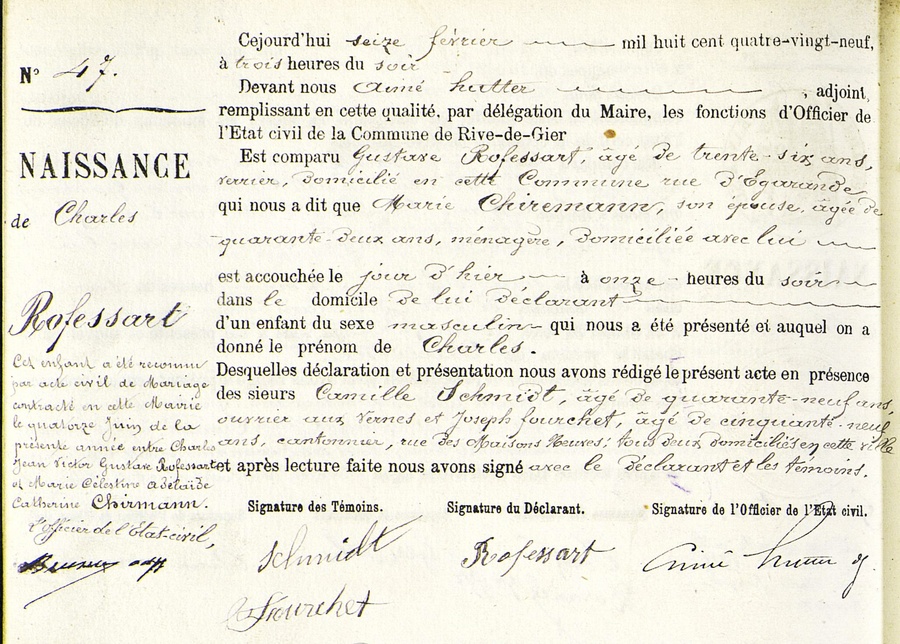 N° 47.
NAISSANCE
de Charles
Rofessart
Cet enfant a été reconnu
par acte civil de Mariage
contracté en cette Mairie
le quatorze Juin de la
présente année entre Charles
Jean Victor Gustave Rofessart
et Marie Célestine Adelaïde
Catherine Chirmann.
l'officier de l'Etat-civil,
Cejourd'hui seize février mil huit cent quatre-vingt-neuf,
à trois heures du soir
Devant nous Aimé hutter, adjoint,
remplissant en cette qualité, par délégation du Maire, les fonctions d'Officier de
l'Etat civil de la Commune de Rive-de-Gier
Est comparu Gustave Rofessart, âgé de trente-six ans,
verrier, domicilié en cette Commune rue d'Egarande
qui nous a dit que Marie Chiremann, son épouse, âgée de
quarante-deux ans, ménagère, domiciliée avec lui
est accouchée le jour d'hier à onze heures du soir
dans le domicile de lui déclarant
d'un enfant du sexe masculin qui nous a été présenté et auquel on a
donné le prénom de Charles.
Desquelles déclaration et présentation nous avons rédigé le présent acte en présence
des sieurs Camille Schmidt, âgé de quarante-neuf ans,
ouvrier aux Vernes et Joseph fourchet, âgé de cinquante-neuf
ans, cantonnier, rue des Maisons Neuves; tous deux domiciliés en cette ville
et après lecture faite nous avons signé avec le déclarant et les témoins.
Signature des Témoins. Signature du Déclarant. Signature de l'Officier de l'Etat civil.
Schmidt Rofessart Aimé hutter
Fourchet